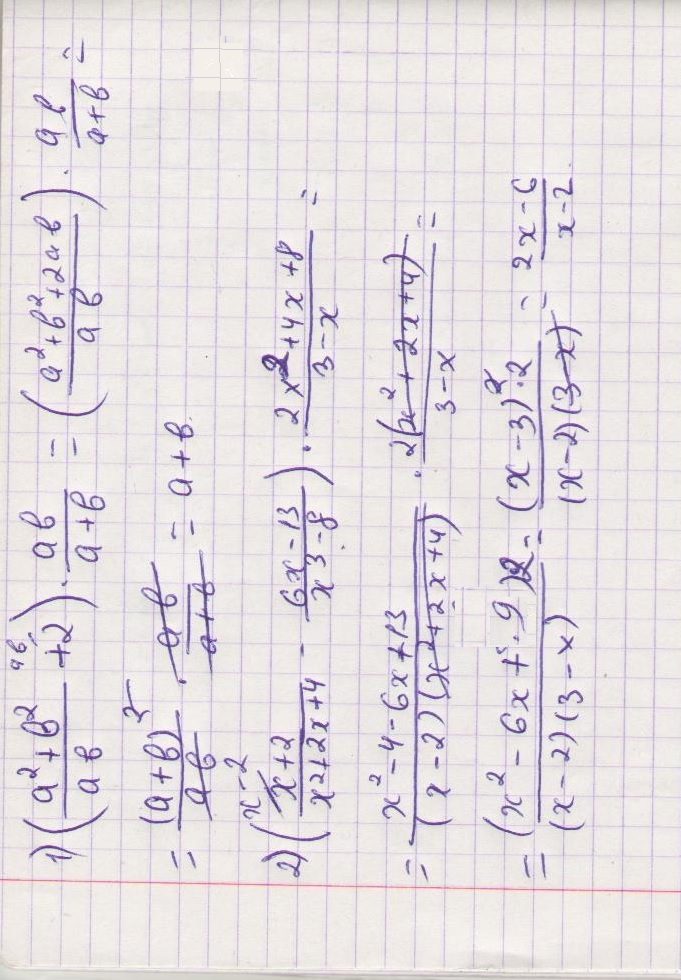 1) ((a²+b²)/(ab) + 2^(ab)) · ab/(a+b) = ((a²+b²+2ab)/(ab)) · ab/(a+b) =
= (a+b)²/(ab) · ab/(a+b) = a+b.
2) ((x+2)^(x-2)/(x²+2x+4) - (6x-13)/(x³-8)) · (2x²+4x+8)/(3-x) =
= (x²-4-6x+13)/((x-2)(x²+2x+4)) · 2(x²+2x+4)/(3-x) =
= (x²-6x+9)2/((x-2)(3-x)) = (x-3)²·2/((x-2)(3-x)) = (2x-6)/(x-2).